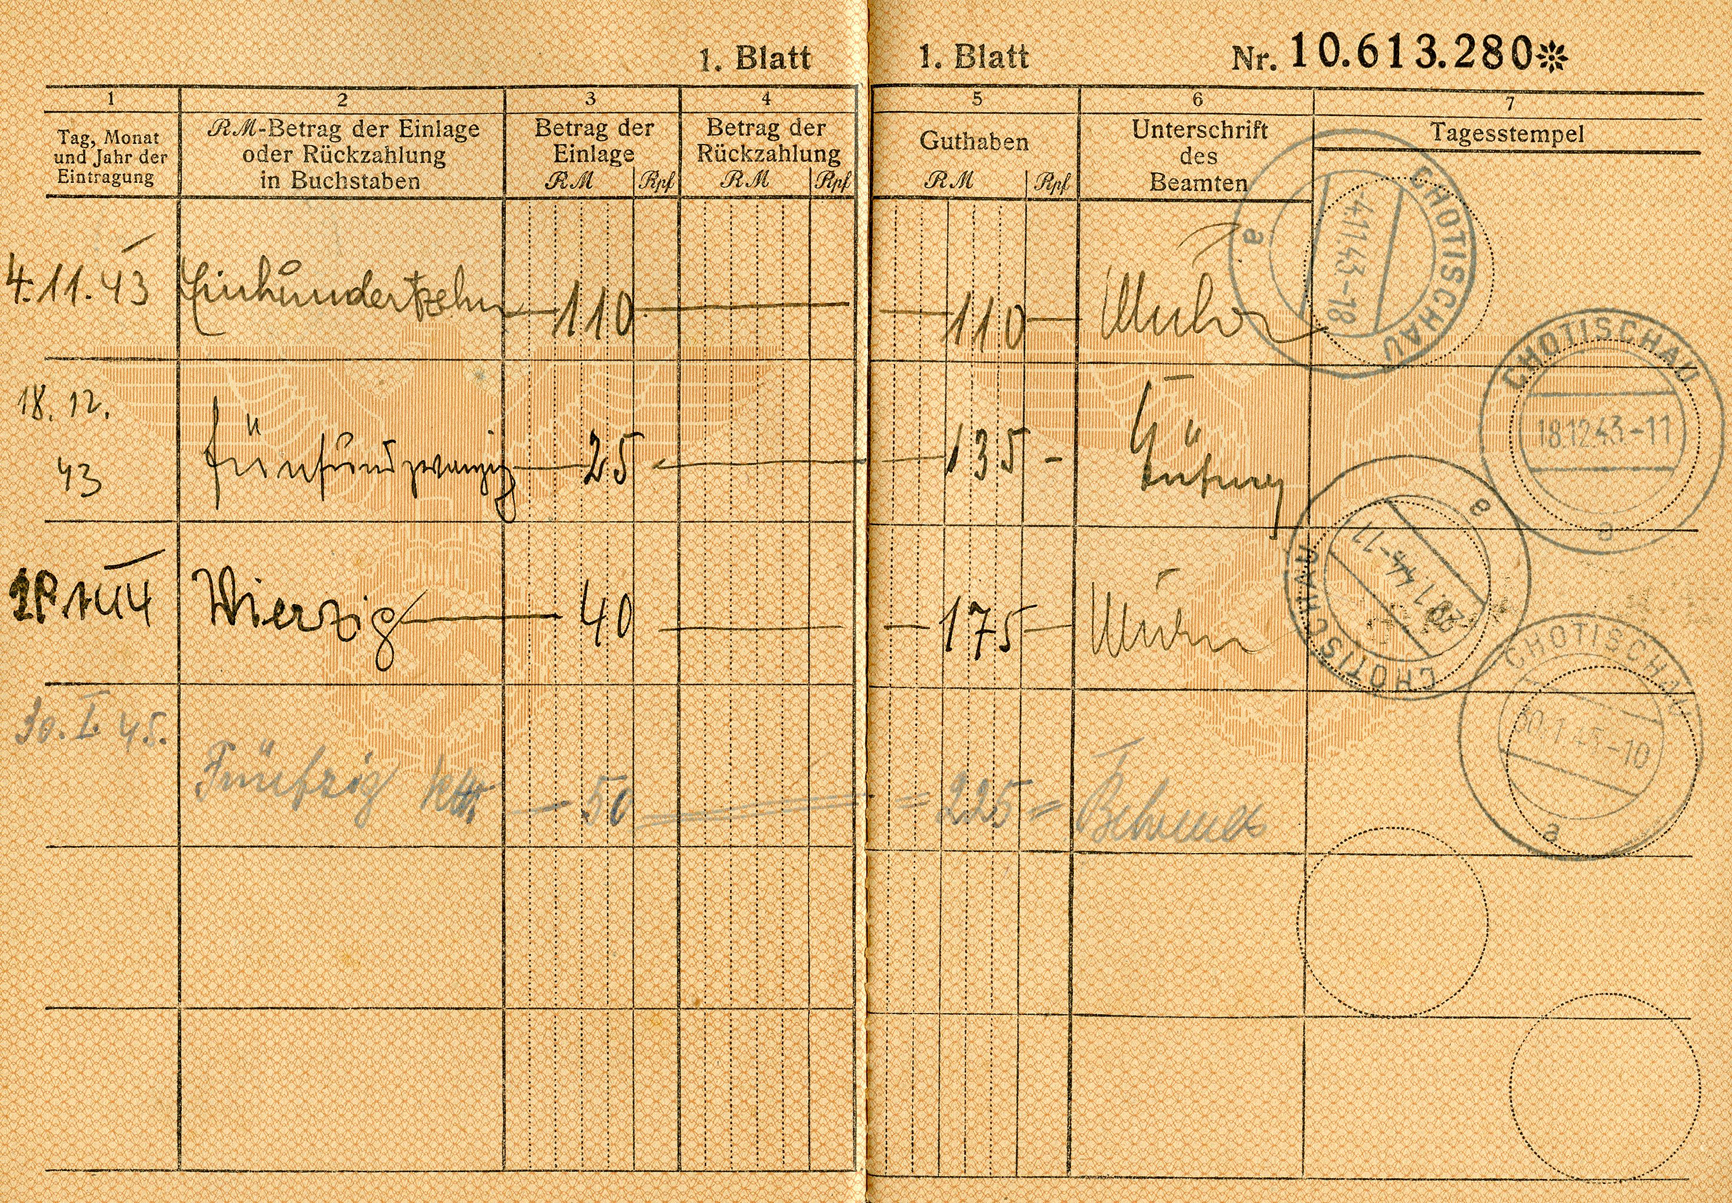 1. Blatt
1. Blatt Nr. 10.613.280
1 2 3 4 5 6 7
Tag, Monat
und Jahr der
Eintragung
RM-Betrag der Einlage
oder Rückzahlung
in Buchstaben
Betrag der
Einlage
RM Rpf
Betrag der
Rückzahlung
RM Rpf
Guthaben
RM Rpf
Unterschrift
des
Beamten
Tagesstempel
4.11.43 Einhundertzehn 110 110
CHOTISCHAU
4.11.43-18
a
18.12.
43 fünfundzwanzig 25 135
CHOTISCHAU
18.12.43-11
a
Vierzig 40 175
CHOTISCHAU
28.1.44-17
e
30.I.45.
Fünfzig 50 225 Behrends
CHOTISCHAU
30.1.45-10
a